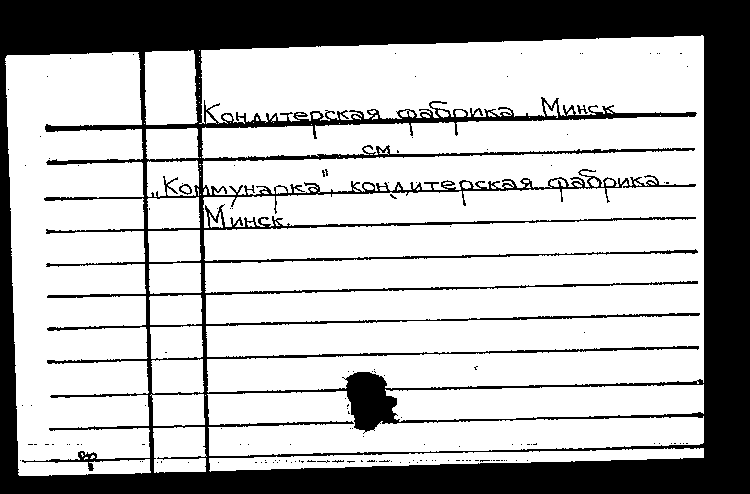 Кондитерская фабрика. Минск
см.
„Коммунарка", кондитерская фабрика.
Минск.